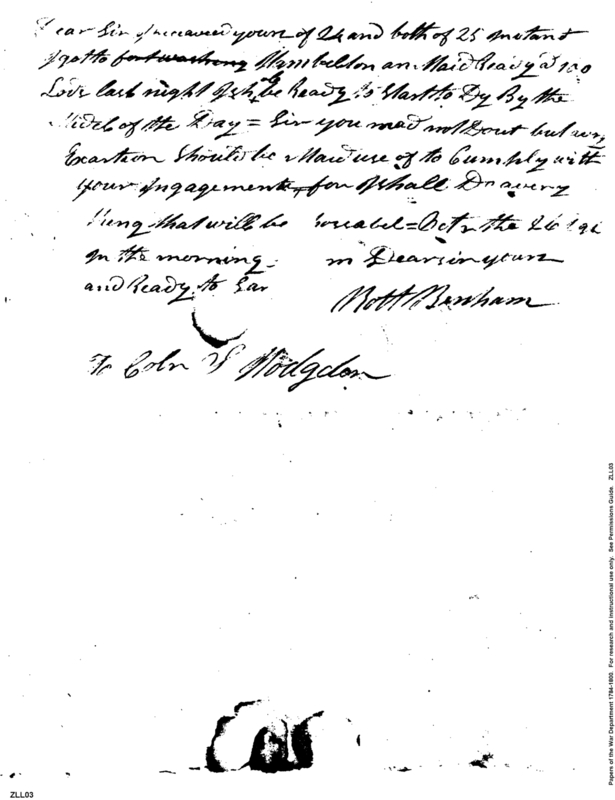 Dear Sir I receaved yours of 24 and both of 25 instant
I got to fort washeng Hambelton an Maid Ready a 100
Lode last night I shll be Ready to Start to Dy By the
Midel of the Day = Sir you nead not Dout but every
Exartion Should be Maid use of to Cumply with
your Ingagements for I shall Do avery
thing that will be = Octr the 26
In the morning. in Dear sir yours
and Ready to Sar
Robt Benham
To Coln S Hodgdon
Papers of the War Department 1784-1800. For research and instructional use only. See Permissions Guide. ZLL03
ZLL03